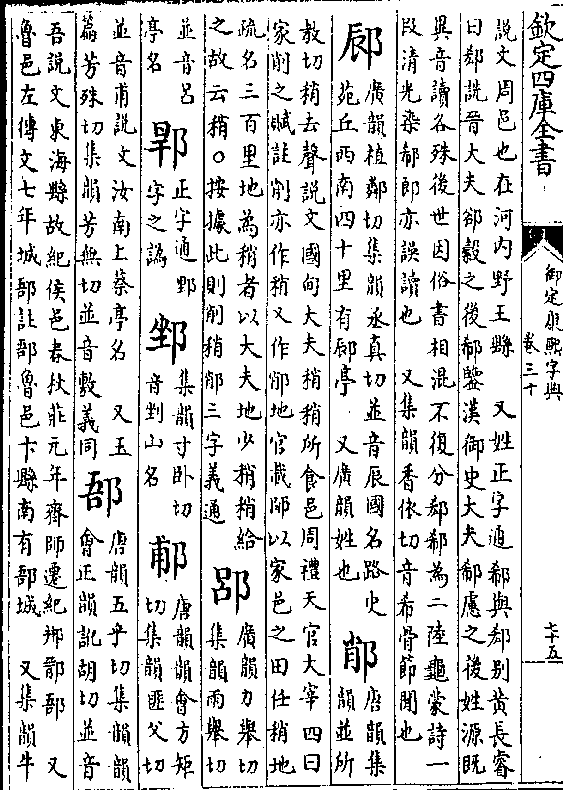 欽定四庫全書
御定康熙字典
卷三十
七十五
說文周邑也在河內野王縣 又姓正字通郗與郄别黄長睿
曰郄說晉大夫郤縠之後郗鑒漢御史大夫郗慮之後姓源既
異音讀各殊後世因俗書相混不復分郄郗為二陸龜蒙詩一
段清光染郗郎亦誤讀也 又集韻香依切音希骨節閒也
廣韻植鄰切集韻丞真切並音辰國名路史
苑丘西南四十里有亭 又廣韻姓也
唐韻集
韻並所
教切稍去聲說文國甸大夫稍稍所食邑周禮天官大宰四曰
家削之賦註削亦作稍又作地官載師以家邑之田任稍地
疏名三百里地為稍者以大夫地少稍稍給
之故云稍○按據此則削稍三字義通
郘
廣韻力舉切
集韻兩舉切
並音呂
亭名
正字通野
字之譌
集韻寸卧切
音剉山名
郙
唐韻韻會方矩
切集韻匪父切
並音甫說文汝南上蔡亭名 又玉
篇芳殊切集韻芳無切並音敷義同
郚
唐韻五乎切集韻韻
會正韻訛胡切並音
吾說文東海縣故紀侯邑春秋莊元年齊師遷紀郱鄑郚 又
魯邑左傳文七年城郚註郚魯邑卞縣南有郚城 又集韻牛